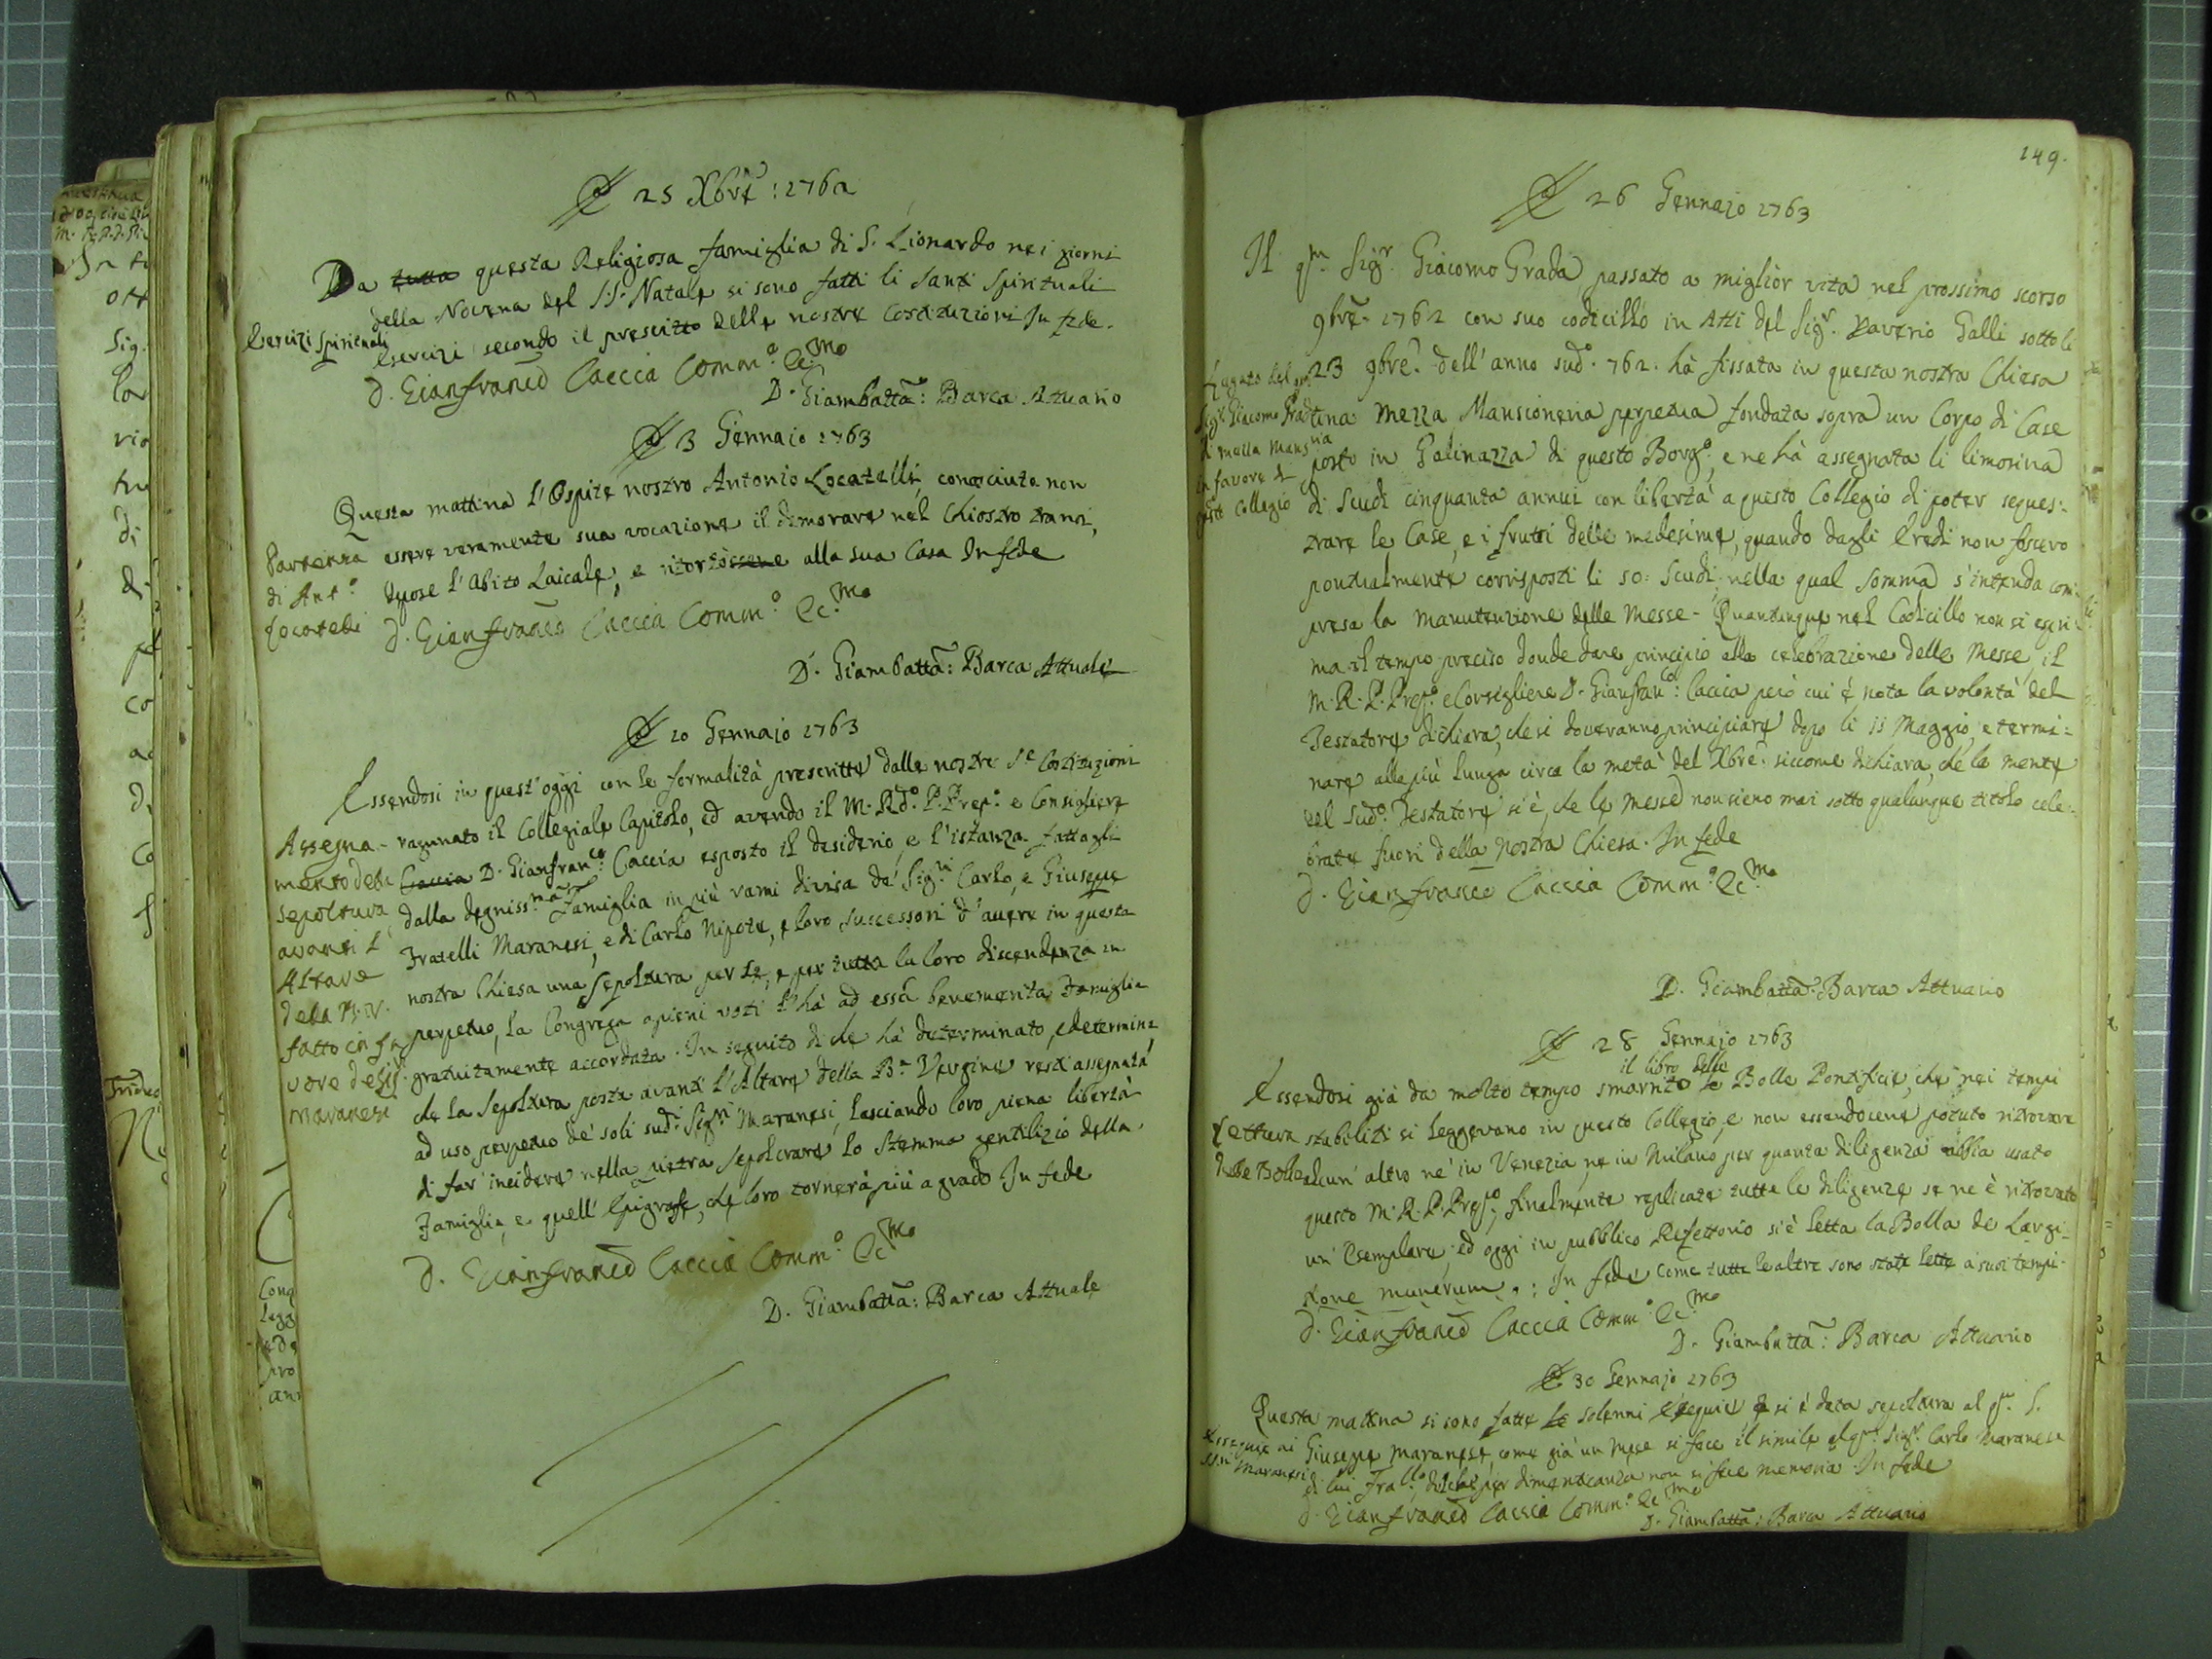 Adì 25 Xbre: 1762
Da tutta questa Religiosa famiglia di S. Lionardo nei giorni
della Novena del SS. Natale si sono fatti li Santi Spirituali
Esercizi Spirituali
Esercizi secondo il prescritto delle nostre Costituzioni In fede.
D. Gianfranco Caccia Comm.o &c. mo
D. Giambatta: Barca Attuario
Adì 3 Gennaio 1763
Questa mattina l'Ospite nostro Antonio Locatelli, conosciuta non
essere veramente sua vocazione il dimorare nel Chiostro tranoi,
depose l'Abito Laicale, e ritornossene alla sua Casa In fede
Partenza
di Ant.o
Locateli
D. Gianfranco Caccia Comm.o &c. mo
D. Giambatta: Barca Attuale
Adì 20 Gennajo 1763
Essendosi in quest'oggi con le formalità prescritte dalle nostre S.e Costituzioni
ragunato il Collegiale Capitolo, ed avendo il M. Rdo. P. Prep.o e Consigliere
Caccia D. Gianfran.co: Caccia esposto il desiderio, e l'istanza fattagli
dalla degniss.ma Famiglia in più rami divisa de' Sig.ri Carlo, e Giuseppe
Fratelli Maranesi, e di Carlo Nipote, e loro successori d'avere in questa
nostra Chiesa una Sepoltura per se, e per tutta la loro discendenza in
perpetuo, la Congrega a pieni voti l'hà ad essa benemerita Famiglia
gratuitamente accordata. In seguito di che hà determinato, e determina,
che la Sepoltura posta avanti l'Altare della B.a Vergine resti assegnata
ad uso perpetuo de' soli sud.i Sig.ri Maranesi, lasciando loro piena libertà
di far incidere nella pietra Sepolcrare lo Stemma gentilizio della
Famiglia, e quell'Epigrafe, che loro tornerà più a grado In fede
Assegna-
mento dela
sepoltura
avanti l'
Altare
dela B. V.
fatto in fa
vore de Sig.
Maranesi
D. Gianfranco Caccia Comm.o &c. mo
D. Giambatta: Barca Attuale
149.
Adì 26 Gennajo 1763
Il qm. Sigr. Giacomo Grada passato a miglior vita nel prossimo scorso
9bre. 1762 con suo codicillo in Atti del Sigr. Xaverio Galli sotto li
23 9bre. dell'anno sudo. 762. hà fissata in questa nostra Chiesa
una Mezza Mansioneria perpetua fondata sopra un Corpo di Case
posto in Galinazza di questo Borgo, e ne hà assegnata li limosina
di Scudi cinquanta annui con libertà a questo Collegio di poter seques:
trare le Case, e i frutti delle medesime, quando dagli Eredi non fossero
pontualmente corrisposti li 50: Scudi; nella qual somma s'intenda com-
presa la manutenzione delle Messe - Quantunque nel Codicillo non si espri-
ma il tempo preciso donde dare principio alla celebrazione delle Messe, il
M. R. P. Prep.o e Consigliere D. Gianfran.co: Caccia però cui è nota la volontà del
Testatore dichiara, che si doveranno principiare dopo li 15 Maggio, e termi:
nare alla più lunga circa la metà del Xbre. siccome dichiara, che la mente
del Sudo. Testatore si è, che le Messe non sieno mai sotto qualunque titolo cele-
brate fuori della nostra Chiesa. In fede
Legato del qm.
Sigr. Giacomo Grada
di meza Mans.ria
in favore di
questo Collegio
D. Gianfranco Caccia Comm.o &c. mo
D. Giambatta: Barca Attuario
Adì 28 Gennajo 1763
il libro delle
Essendosi già da molto tempo smarrito le Bolle Pontificie, che nei tempi
stabiliti si leggevano in questo Collegio, e non essendocene potuto ritrovare
alcun' altro nè in Venezia, ne in Milano per quanta diligenza abbia usato
questo M. R. P. Prep.o, finalmente replicate tutte le diligenze se ne è ritrovato
un' Esemplare, ed oggi in pubblico Refettorio si è letta la Bolla de Largi-
tione munerum.; In fede come tutte le altre sono state lette a suoi tempi.
Lettura
delle Bolle
D. Gianfranco Caccia Comm.o &c. mo
D. Giambatta: Barca Attuario
Adì 30 Gennajo 1763
Questa mattina si sono fatte le solenni esequie e si è data sepoltura al qm. S.
Giuseppe Maranese, come già un mese si fece il simile al qm. Sigr. Carlo Maranese
di lui Fra.llo, di che per dimenticanza non si fece memoria. In fede
Essequie ai
SS.ri Maranesi
D. Gianfranco Caccia Comm.o &c. mo
D. Giambatta: Barca Attuario